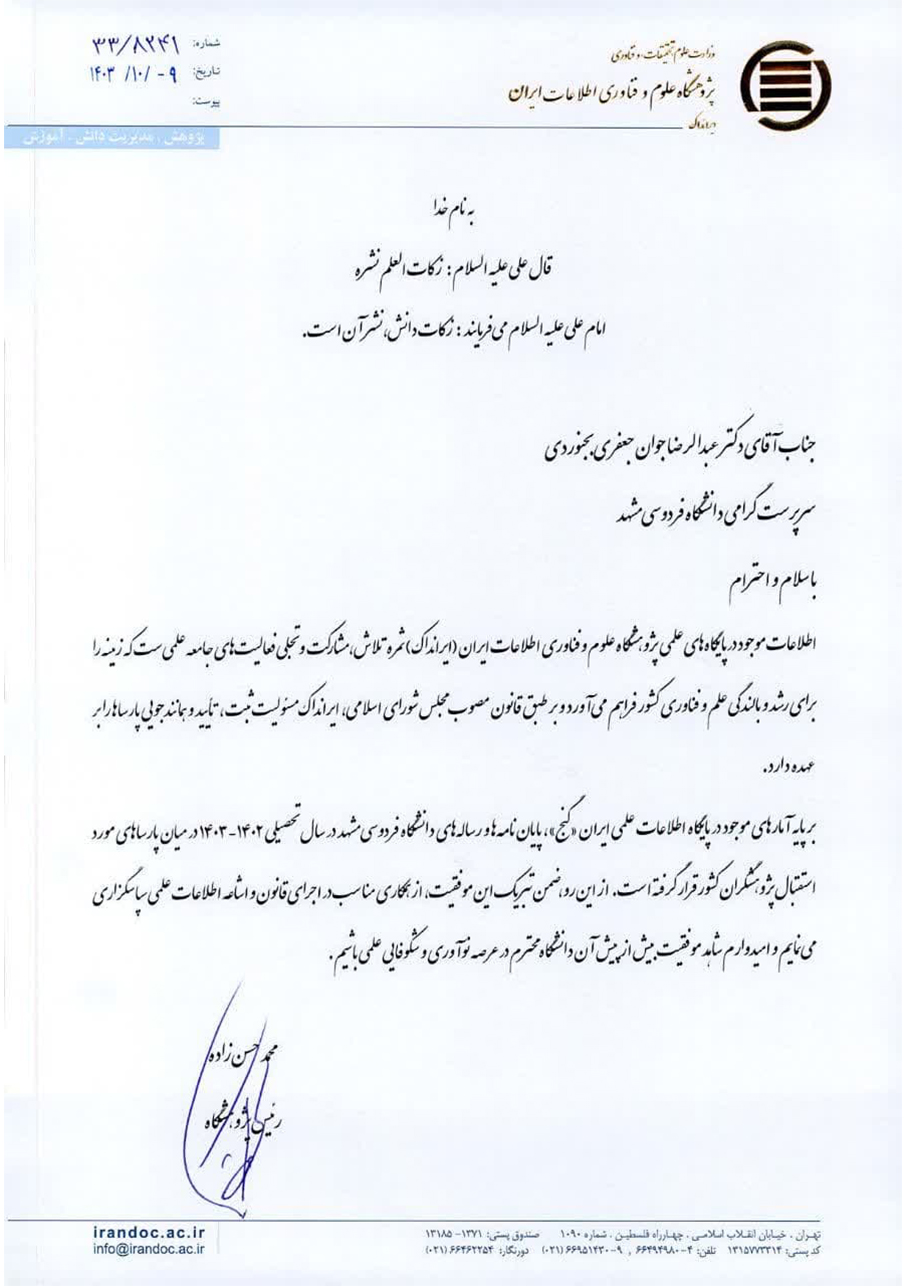 شماره: ۳۳/۸۲۴۱
تاریخ: ۱۴۰۳ /۱۰/ - ۹
پیوست:
وزارت علوم، تحقیقات و فناوری
پژوهشگاه علوم و فناوری اطلاعات ایران
ایرانداک
پژوهش . مدیریت دانش . آموزش
به نام خدا
قال علی علیه السلام: زکات العلم نشره
امام علی علیه السلام می‌فرمایند: زکات دانش، نشر آن است.
جناب آقای دکتر عبدالرضا جوان جعفری بجنوردی
سرپرست گرامی دانشگاه فردوسی مشهد
با سلام و احترام
اطلاعات موجود در پایگاه‌های علمی پژوهشگاه علوم و فناوری اطلاعات ایران (ایرانداک) ثمره تلاش، مشارکت و تجلی فعالیت‌های جامعه علمی ست که زمینه را
برای رشد و بالندگی علم و فناوری کشور فراهم می‌آورد و بر طبق قانون مصوب مجلس شورای اسلامی، ایرانداک مسئولیت ثبت، تأیید و همانندجویی پارساها را بر
عهده دارد.
بر پایه آمارهای موجود در پایگاه اطلاعات علمی ایران «گنج»، پایان نامه ها و رساله های دانشگاه فردوسی مشهد در سال تحصیلی ۱۴۰۲-۱۴۰۳ در میان پارساهای مورد
استقبال پژوهشگران کشور قرار گرفته است. از این رو، ضمن تبریک این موفقیت، از همکاری مناسب در اجرای قانون و اشاعه اطلاعات علمی سپاسگزاری
می‌نمایم و امیدوارم شاهد موفقیت بیش از پیش آن دانشگاه محترم در عرصه نوآوری و شکوفایی علمی باشیم.
محمد حسن زاده
رئیس پژوهشگاه
تهران ، خیابان انقلاب اسلامی ، چهارراه فلسطین ، شماره ۱۰۹۰ صندوق پستی: ۱۳۷۱- ۱۳۱۸۵
کد پستی: ۱۳۱۵۷۷۳۳۱۴ تلفن: ۴-۶۶۴۹۴۹۸۰ , ۹-۶۶۹۵۱۴۳۰ (۰۲۱) دورنگار: ۶۶۴۶۲۲۵۴ (۰۲۱)
irandoc.ac.ir
info@irandoc.ac.ir